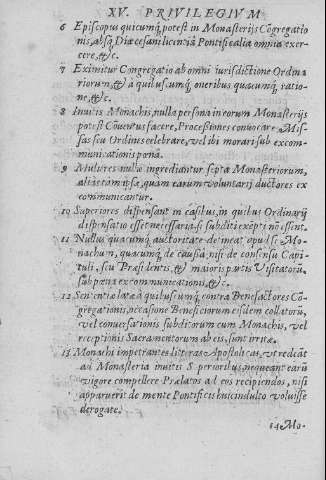 XV. PRIVILEGIVM
6 Episcopus quicumq; potest in Monasterijs Cõgregatio
nis, absq; Diœcesani licentia Pontificalia omnia exer-
cere, &c.
7 Eximitur Congregatio ab omni iurisdictione Ordina
riorum, & a quibuscumq; oneribus quacumq; ratio-
ne, &c.
8 Inuitis Monachis, nulla persona in eorum Monasterijs
potest Cõuentus facere, Processiones conuocare, Mis-
sas seu Ordines celebrare, vel ibi morari sub excom-
municationis pœna.
9 Mulieres nullæ ingrediantur septa Monasteriorum,
alias tam ipsæ, quam earum voluntarij ductores ex
communicantur.
10 Superiores dispensant in casibus, in quibus Ordinarij
dispensatio esset necessaria, si subditi excepti nõ essent.
11 Nullus quacumq; auctoritate detineat apud se Mo-
nachum, quacumq; de causa, nisi de consensu Capi-
tuli, seu Præsidentis, & maioris partis Visitatorũ,
sub pœna excommunicationis, &c.
12 Sententiæ latæ à quibuscumq; contra Benefactores Cõ-
gregationis, occasione Beneficiorum eisdem collatorũ,
vel conuersationis subditorum cum Monachis, vel
receptionis Sacramentorum ab eis, sunt irritæ.
13 Monachi impetrantes literas Apostolicas, vt redeãt
ad Monasteria inuitis Superioribus, nequeant earũ
vigore compellere Prælatos ad eos recipiendos, nisi
apparuerit de mente Pontificis huic indulto voluisse
derogate.
14 Mo-